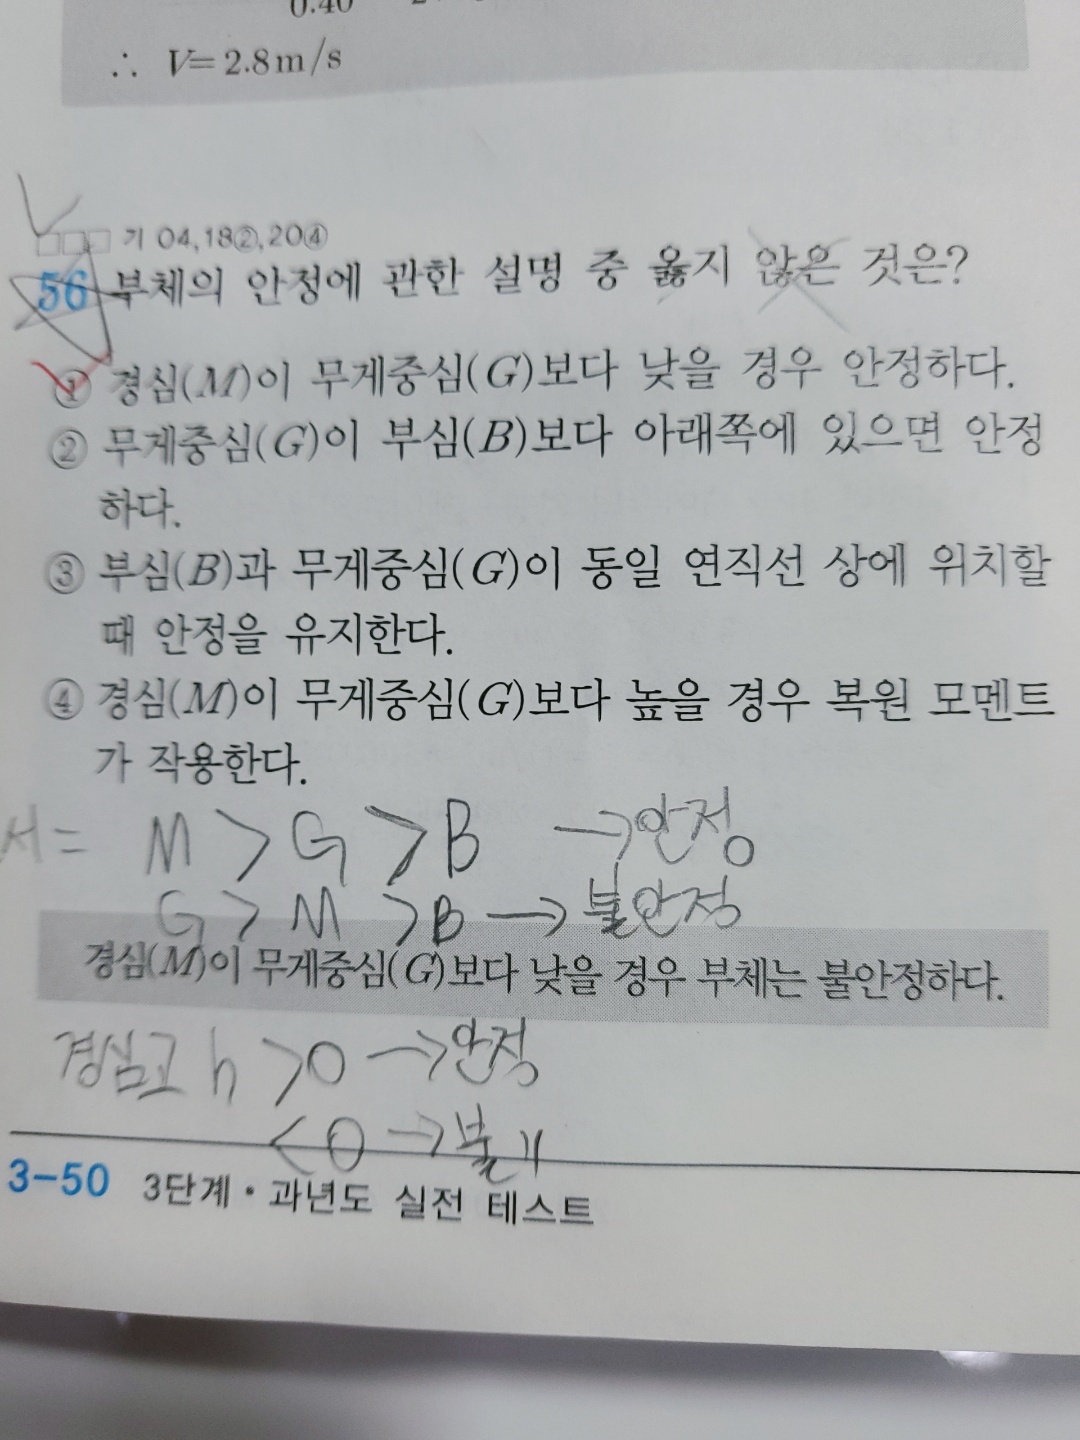 ∴ V=2.8m/s
기 04,18②,20④
56 부체의 안정에 관한 설명 중 옳지 않은 것은?
① 경심(M)이 무게중심(G)보다 낮을 경우 안정하다.
② 무게중심(G)이 부심(B)보다 아래쪽에 있으면 안정
하다.
③ 부심(B)과 무게중심(G)이 동일 연직선 상에 위치할
때 안정을 유지한다.
④ 경심(M)이 무게중심(G)보다 높을 경우 복원 모멘트
가 작용한다.
M > G > B → 안정
G > M > B → 불안정
경심(M)이 무게중심(G)보다 낮을 경우 부체는 불안정하다.
경심고 h > 0 → 안정
< 0 → 불
3-50 3단계 • 과년도 실전 테스트